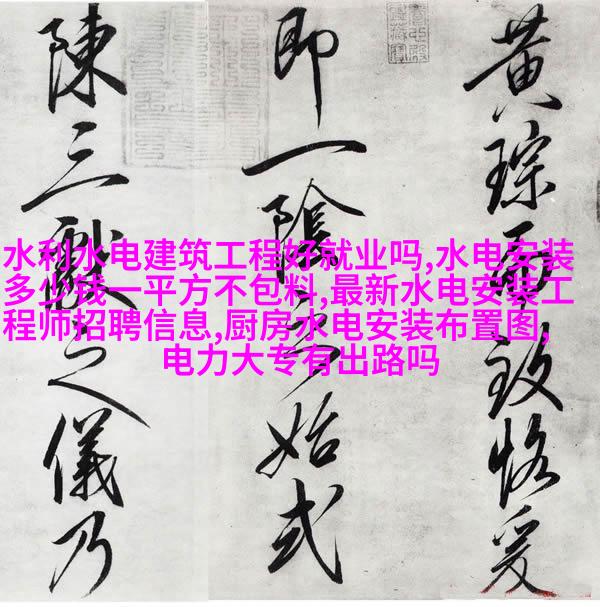 黄琮而致恪爰
即一陰之始式
陳三獻之儀乃
水利水电建筑工程好就业吗,水电安装
多少钱一平方不包料,最新水电安装工
程师招聘信息,厨房水电安装布置图,
电力大专有出路吗